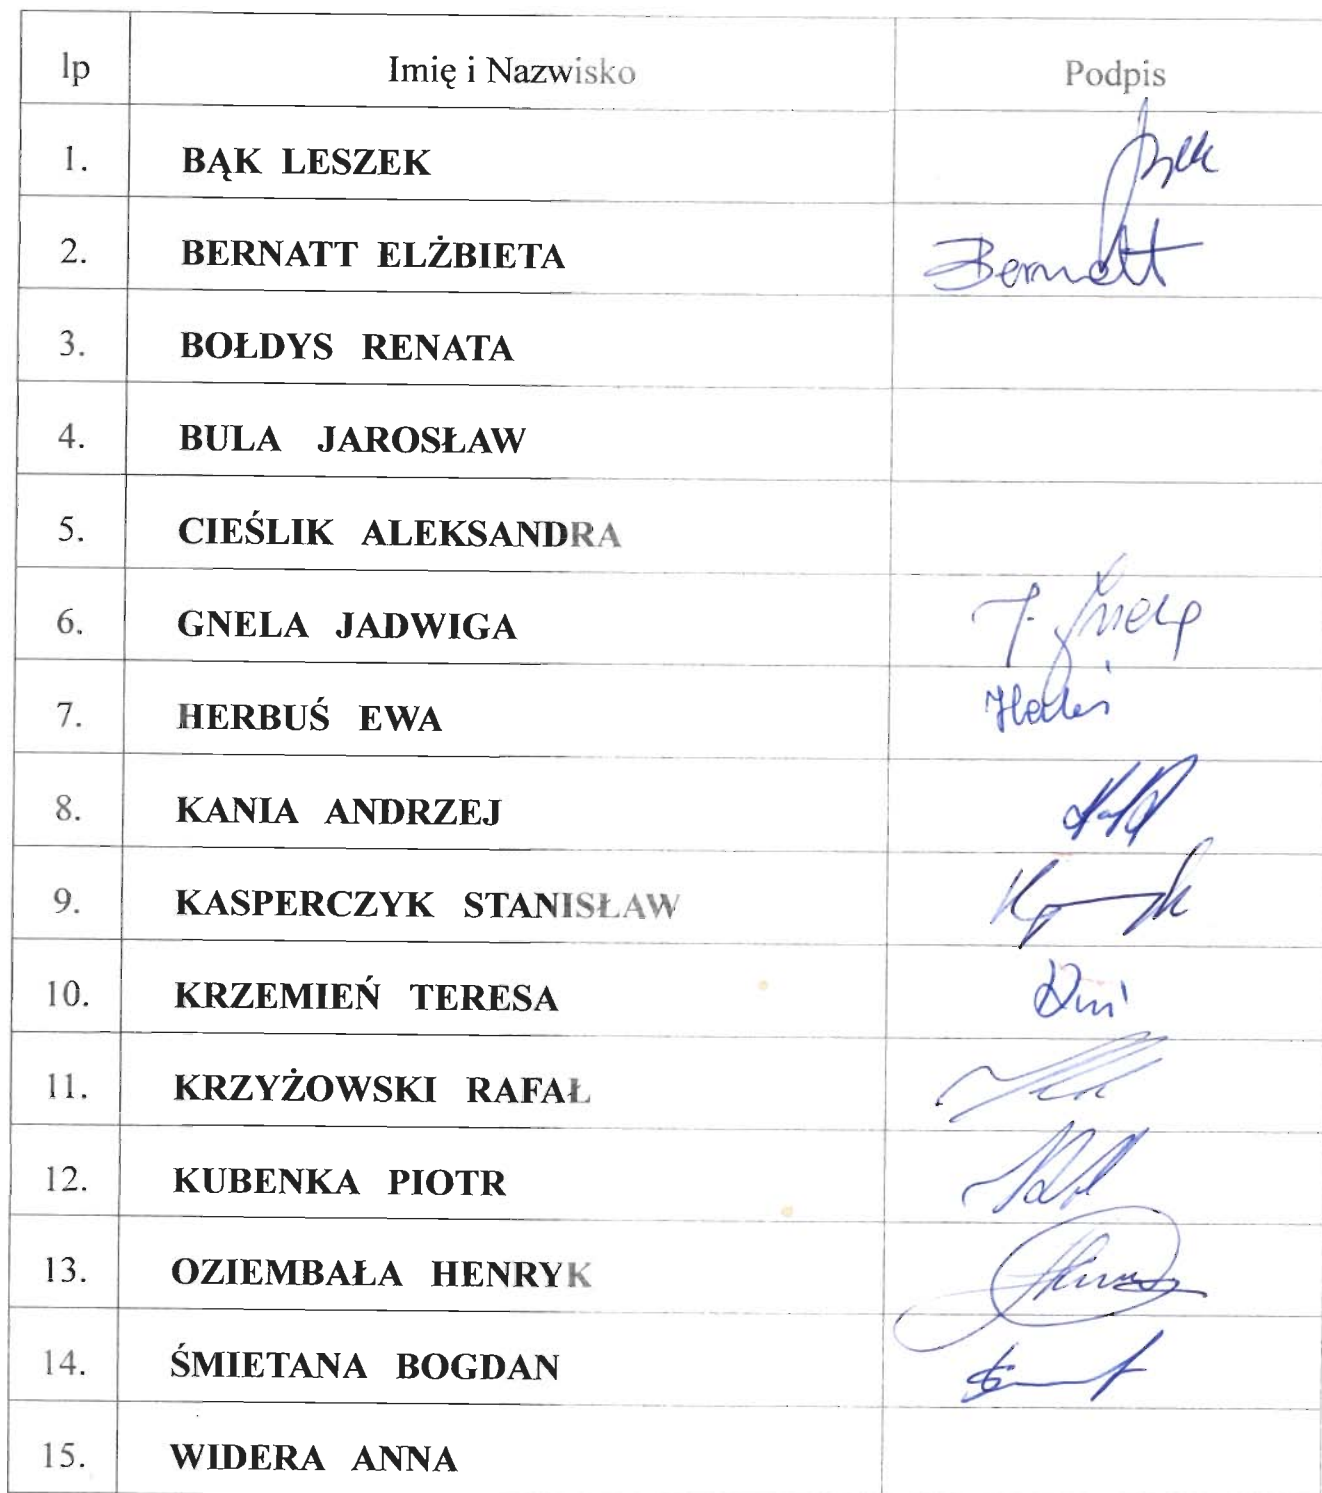 lp Imię i Nazwisko Podpis
1. BĄK LESZEK
2. BERNATT ELŻBIETA Bernatt
3. BOŁDYS RENATA
4. BULA JAROSŁAW
5. CIEŚLIK ALEKSANDRA
6. GNELA JADWIGA J. Gnela
7. HERBUŚ EWA
8. KANIA ANDRZEJ
9. KASPERCZYK STANISŁAW
10. KRZEMIEŃ TERESA
11. KRZYŻOWSKI RAFAŁ
12. KUBENKA PIOTR
13. OZIEMBAŁA HENRYK
14. ŚMIETANA BOGDAN
15. WIDERA ANNA